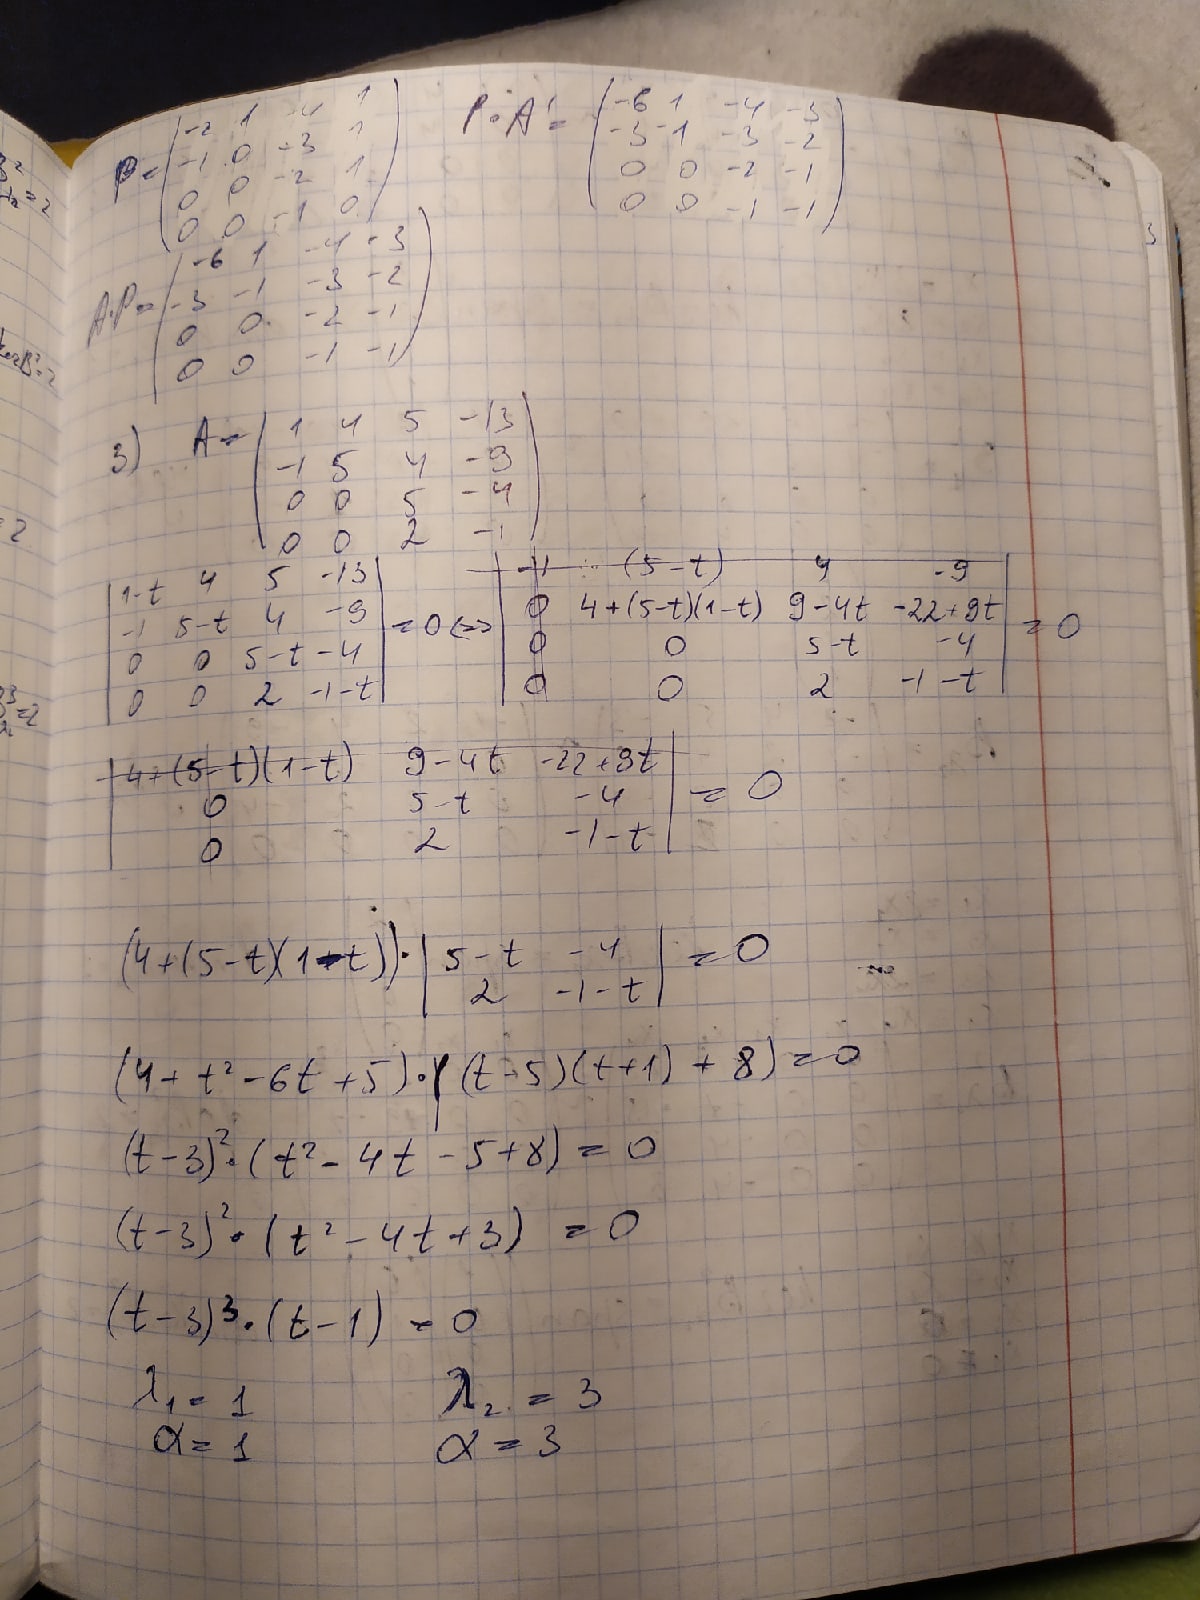 P = ( -2 1 -4 1
-1 0 -3 1
0 0 -2 1
0 0 -1 0 )
P·A' = ( -6 1 -4 -3
-3 -1 -3 -2
0 0 -2 -1
0 0 -1 -1 )
A·P = ( -6 1 -4 -3
-3 -1 -3 -2
0 0 -2 -1
0 0 -1 -1 )
3) A = ( 1 4 5 -13
-1 5 4 -9
0 0 5 -4
0 0 2 -1 )
| 1-t 4 5 -13
-1 5-t 4 -9
0 0 5-t -4
0 0 2 -1-t | = 0 <=>
| -1 (5-t) 4 -9
0 4+(5-t)(1-t) 9-4t -22+9t
0 0 5-t -4
0 0 2 -1-t | = 0
| 4+(5-t)(1-t) 9-4t -22+9t
0 5-t -4
0 2 -1-t | = 0
(4+(5-t)(1-t))· | 5-t -4
2 -1-t | = 0
(4+t²-6t+5)·((t-5)(t+1)+8) = 0
(t-3)²·(t²-4t-5+8) = 0
(t-3)²·(t²-4t+3) = 0
(t-3)³·(t-1) = 0
λ₁ = 1 λ₂ = 3
α = 1 α = 3